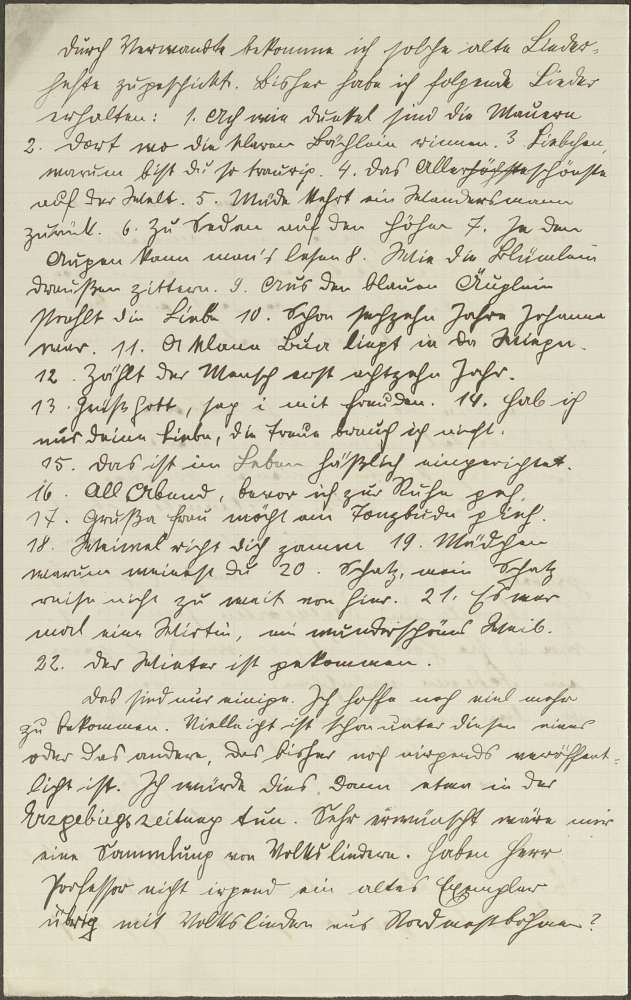 Durch Verwandte bekomme ich solche alte Lieder-
hefte zugeschickt. Bisher habe ich folgende Lieder
erhalten: 1. Ach wie dunkel sind die Mauern
2. Dort wo die klaren Bächlein rinnen. 3. Liebchen,
warum bist du so traurig. 4. Das Allerhöchsteschönste
auf der Welt. 5. Müde kehrt ein Wandersmann
zurück. 6. Zu Sedan auf den Höhen 7. In den
Augen kann man's lesen 8. Wie die Blümlein
draußen zittern. 9. Aus den blauen Äuglein
strahlt die Liebe 10. Schon sechzehn Jahre Johanna
war. 11. A klane Bua liegt in da Wiegn.
12. Zählt der Mensch erst achtzehn Jahr.
13. Grüß Gott, sag i mit Freuden. 14. Hab ich
nur deine Liebe, die Treue brauch ich nicht.
15. Das ist im Leben häßlich eingerichtet.
16. All Abend, bevor ich zur Ruhe geh.
17. Grußa Frau möcht am Tonzbudn gieh.
18. Weiwel richt dich zamm 19. Mädchen
warum weinest du 20. Schatz, mein Schatz
reise nicht zu weit von hier. 21. Es war
mal eine Wirtin, ein wunderschönes Weib.
22. Der Winter ist gekommen.
Das sind nur einige. Ich hoffe noch viel mehr
zu bekommen. Vielleicht ist schon unter diesen eines
oder das andere, das bisher noch nirgends veröffent-
licht ist. Ich würde dies dann etwa in der
Erzgebirgszeitung tun. Sehr erwünscht wäre mir
eine Sammlung von Volksliedern. Haben Herr
Professor nicht irgend ein altes Exemplar
übrig mit Volksliedern aus Nordwestböhmen?